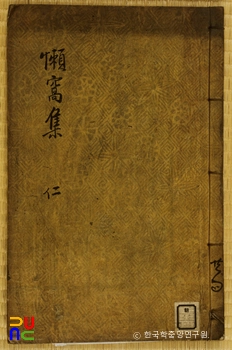 懶窩集
仁
© 한국학중앙연구원